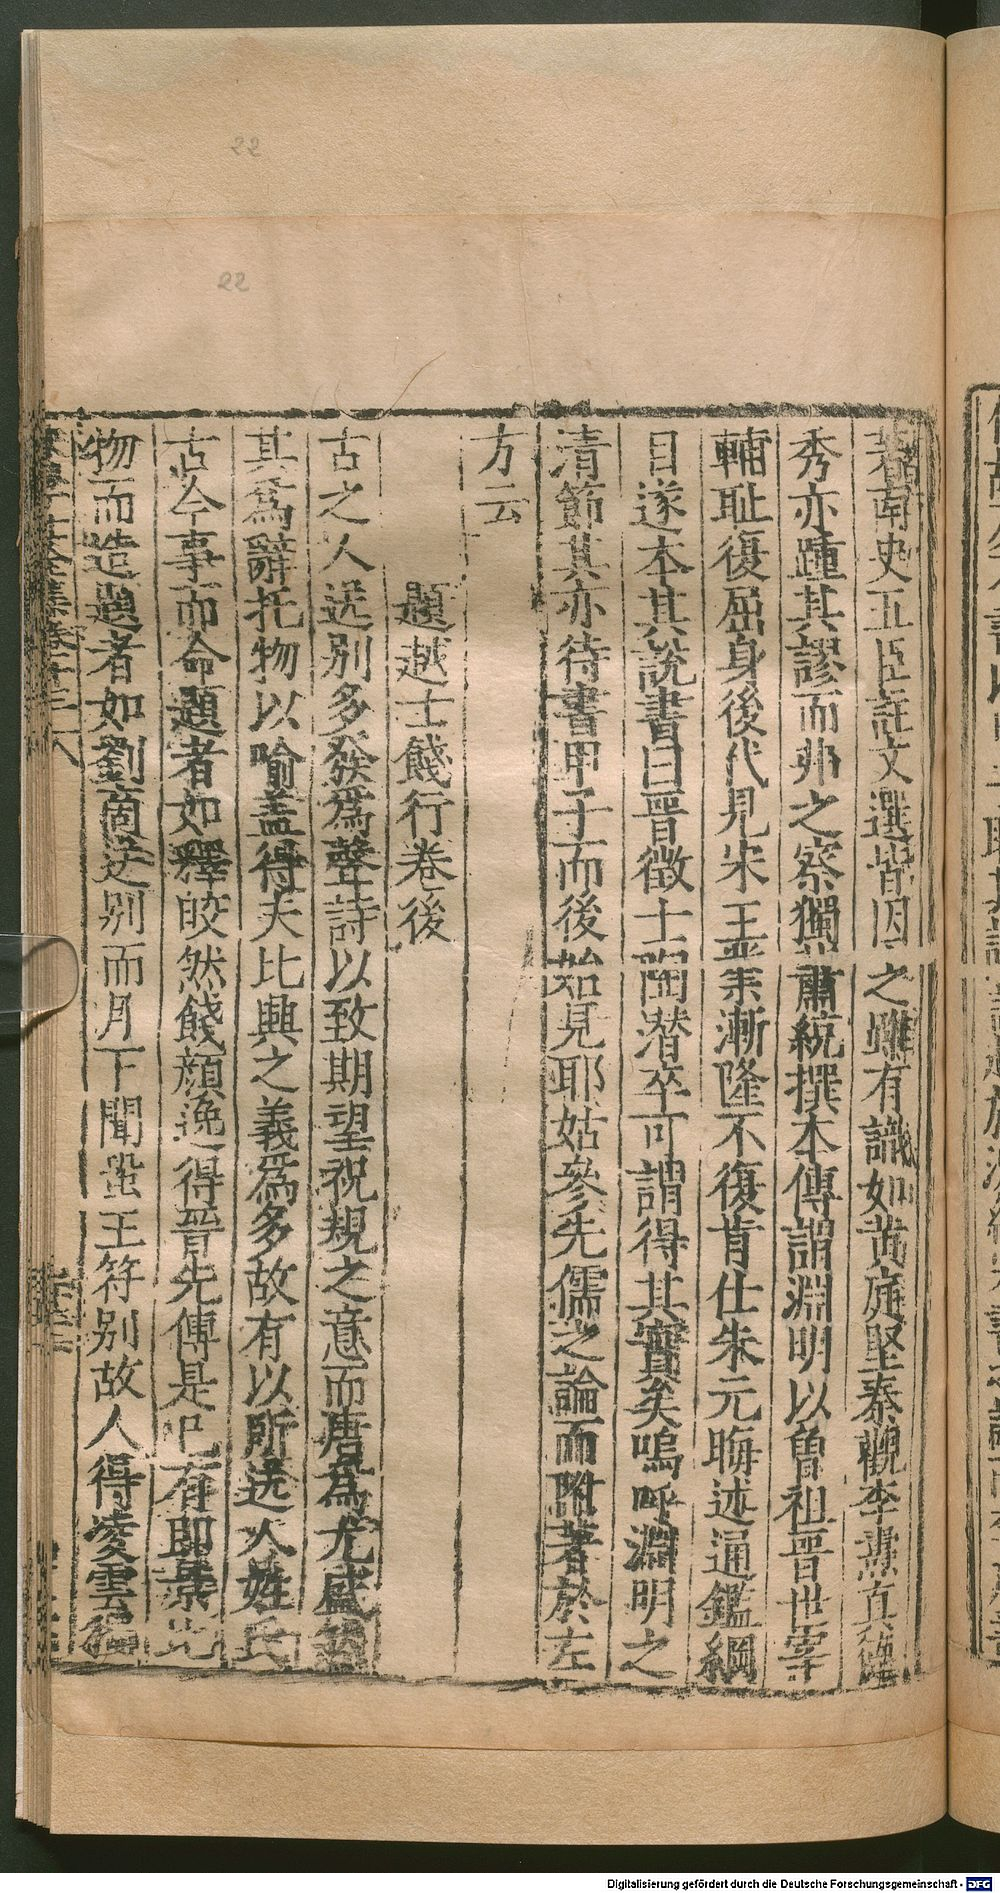 著南史五臣註文選皆因之雖有識如黃庭堅秦觀李燾真德
秀亦踵其謬而弗之察獨蕭統撰本傳謂淵明以曾祖晉世宰
輔恥復屈身後代見宋王業漸隆不復肯仕朱元晦述通鑑綱
目遂本其說書曰晉徵士陶潛卒可謂得其實矣嗚呼淵明之
清節其亦待書甲子而後始見耶姑參先儒之論而附著於左
方云
題越士餞行卷後
古之人送別多發爲聲詩以致期望祝規之意而唐爲尤盛
其爲辭托物以喻蓋得夫比興之義爲多故有以所送人姓氏
古今事而命題者如釋皎然餞顏逸得晉先傳是已有即景比
物而造題者如劉商送別而月下聞蛩王符別故人得凌雲獨
22
22
Digitalisierung gefördert durch die Deutsche Forschungsgemeinschaft - DFG